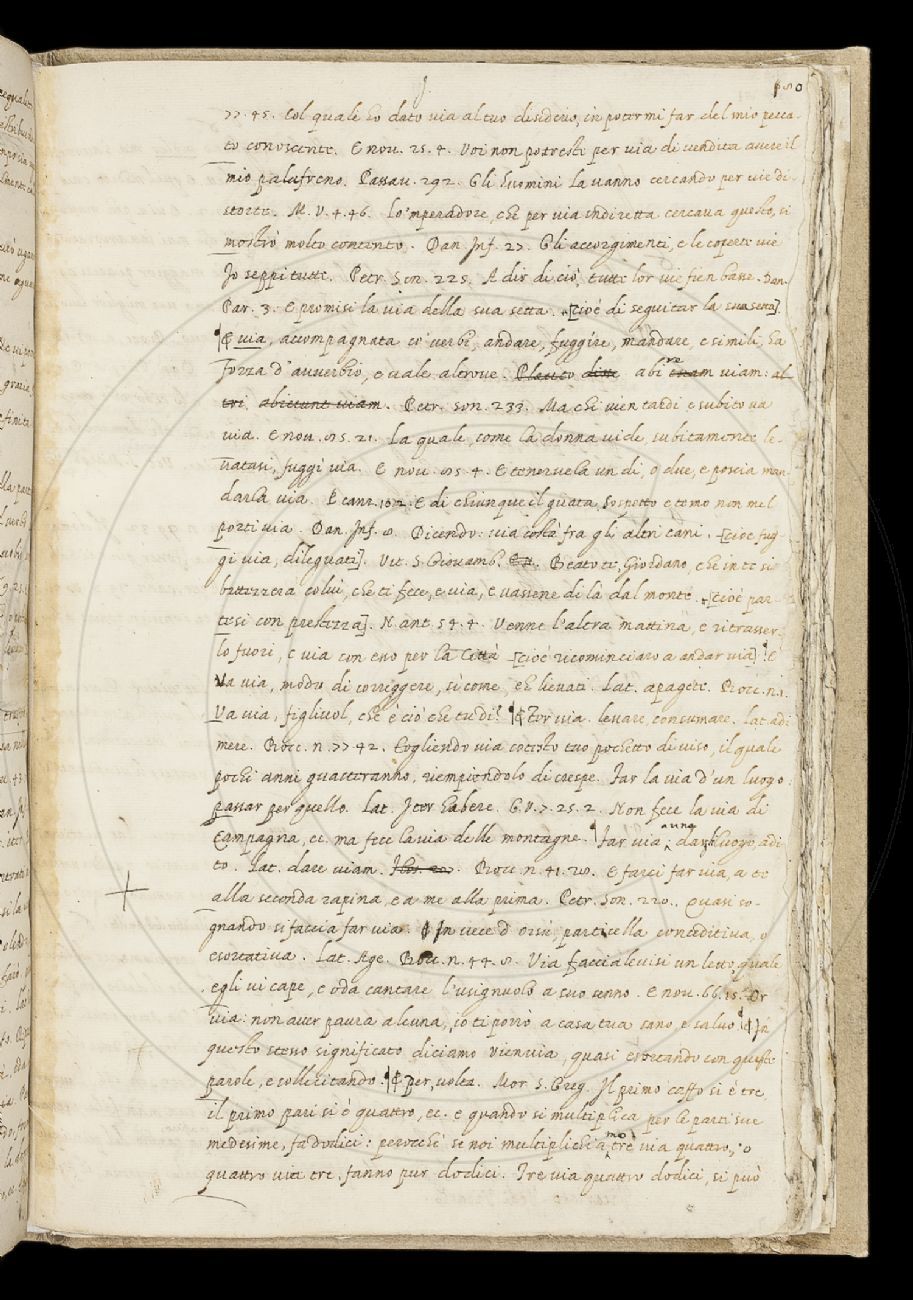 J.
77. 45. Col quale ho dato via al tuo disiderio, in potermi far del mio pecca-
to conoscente. E nov. 25. 4. Voi non potreste per via di vendita avere il
mio palafreno. Passav. 292. Gli huomini la vanno cercando per vie di-
storte. M. V. 4. 46. Lo'mperadore, che per via indiretta cercava questo, si
mostrò molto contento. Dan. Inf. 27. Gli accorgimenti, e le coperte vie
Jo seppi tutte. Petr. Son. 225. A dir di ciò, tutte lor vie fien basse. Dan.
Par. 3. E promisi la via della sua setta. [cioè di seguitar la sua setta].
¶ E via, accompagnata co' verbi, andare, fuggire, mandare, e simili, ha
forza d'avverbio, e vale altrove. Plauto disse abire viam: al-
tri abietunt viam. Petr. son. 233. Ma chi vien tardi e subito va
via. E nov. 15. 21. La quale, come la donna vide, subitamente le-
vatasi, fuggi via. E nov. 15. 4. E tenervela un di, o due, e poscia man-
darla via. E canz. E di chiunque il guata, sospetto e temo non mel
porti via. Dan. Inf. 8. Dicendo: via costà fra gli altri cani. [cioè, fug-
gi via, dileguati]. Vit. S. Giovamb. Beato ti, Giordano, che in te si
battezzerà colui, che ti fece, e via, e vassene di là dal monte. [cioè par-
tesi con prestezza]. N. ant. 54. 4. Venne l'altra mattina, e ritrasser-
lo fuori, e via con esso per la Città [cioè ricominciaro a andar via] ¶ E
va via, modo di correggere, sì come, eh lievati. Lat. apagete. Bocc. n. 1.
Va via, figliuol, che è ciò che tu di? ¶ Tor via. levare, consumare. Lat. adi-
mere. Bocc. n. 77 42. Togliendo via cotesto tuo pochetto di viso, il quale
pochi anni guasteranno, riempiendolo di crespe. Far la via d'un luogo.
passar per quello. Lat. Iter habere. G. V. 7. 25. 2. Non fece la via di
Campagna, ec. ma fece la via delle montagne. ¶ Far via, dar luogo, adi-
to. Lat. dare viam. Bocc. n. 41. 20. E farci far via, a te
alla seconda rapina, e a me alla prima. Petr. Son. 220. Quasi so-
gnando si faccia far via. ¶ In vece d'orsù, particella conceditiva, o
esortativa. Lat. Age. Bocc. n. 44. 8. Via faccialevisi un letto, quale
egli vi cape, e oda cantare l'usignuolo a suo senno. E nov. 66. 15. Or
via: non aver paura alcuna, io ti porrò a casa tua sano, e salvo ¶ In
questo stesso significato diciamo vienvia, quasi esortando con queste
parole, e sollecitando. ¶ per, volta. Mor. S. Greg. Il primo caffo si è tre,
il primo pari si è quattro, ec. e quando si multiplica per le parti sue
medesime, fa dodici: perocchè se noi multiplichiamo tre via quattro, o
quattro vie tre, fanno pur dodici. Tre via quattro dodici, si può